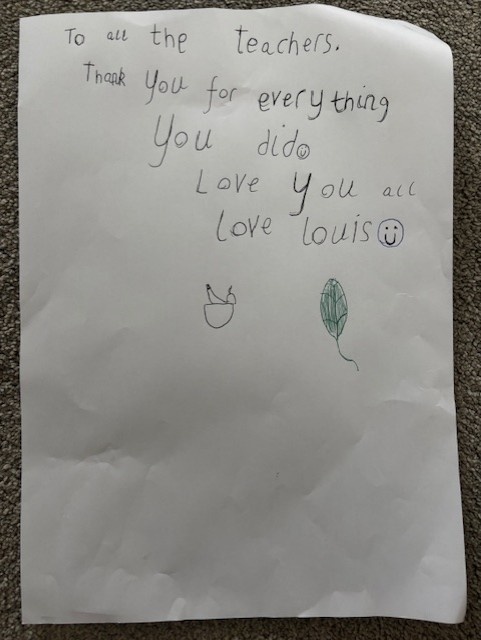 To all the teachers.
Thank you for everything
You did
Love You all
Love louis